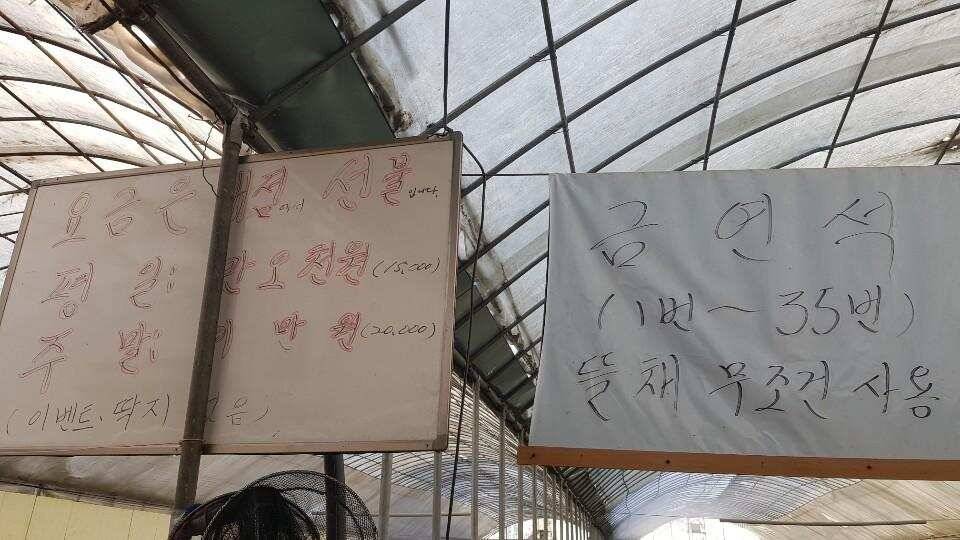 요금은 선불입니다.
평일: 만오천원(15,000)
주말: 만원(20,000)
(이벤트, 딱지
금연석
(1번~35번)
뜰채 무조건 사용